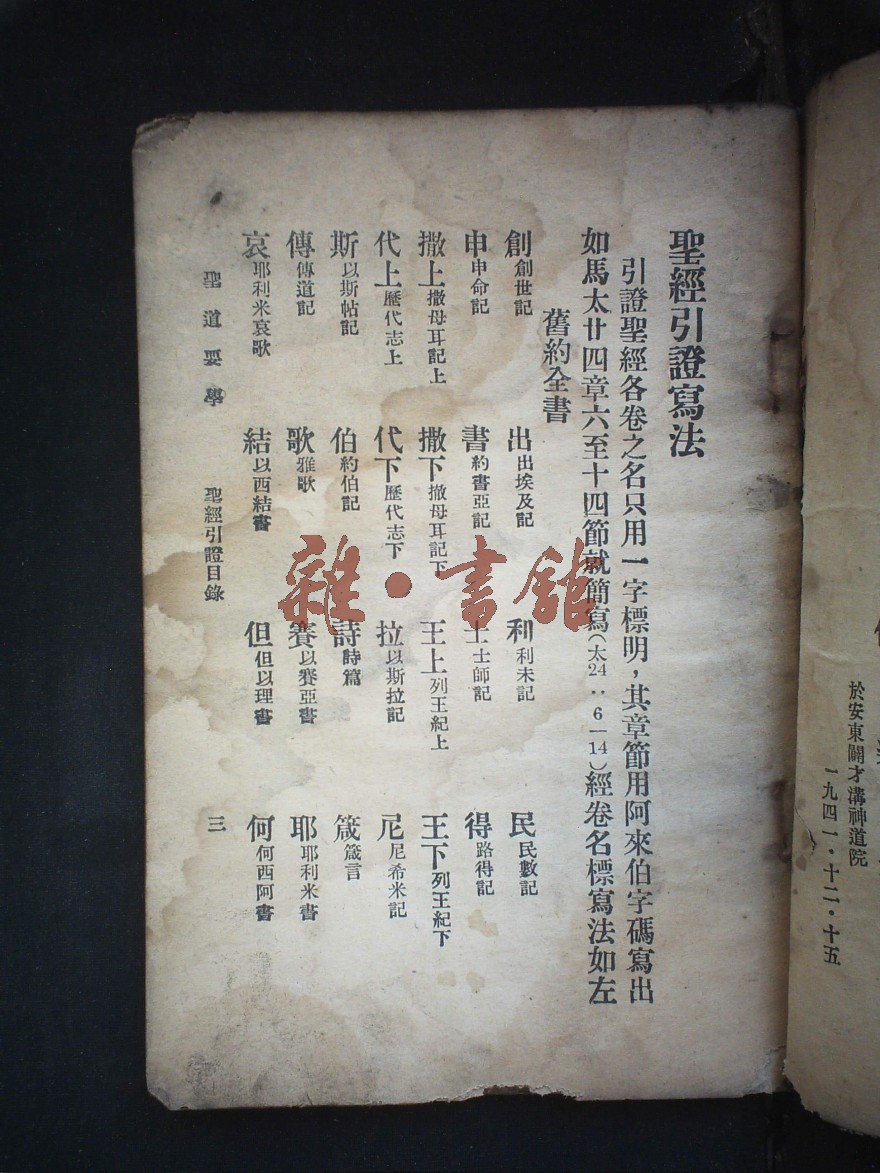 聖經引證寫法
引證聖經各卷之名只用一字標明，其章節用阿來伯字碼寫出
如馬太廿四章六至十四節就簡寫（太24：6—14）經卷名標寫法如左
舊約全書
創創世記 出出埃及記 利利未記 民民數記
申申命記 書約書亞記 士士師記 得路得記
撒上撒母耳記上 撒下撒母耳記下 王上列王紀上 王下列王紀下
代上歷代志上 代下歷代志下 拉以斯拉記 尼尼希米記
斯以斯帖記 伯約伯記 詩詩篇 箴箴言
傳傳道記 歌雅歌 賽以賽亞書 耶耶利米書
哀耶利米哀歌 結以西結書 但但以理書 何何西阿書
聖道要學 聖經引證目錄 三
雜·書館
於安東關才溝神道院
一九四一·十二·十五